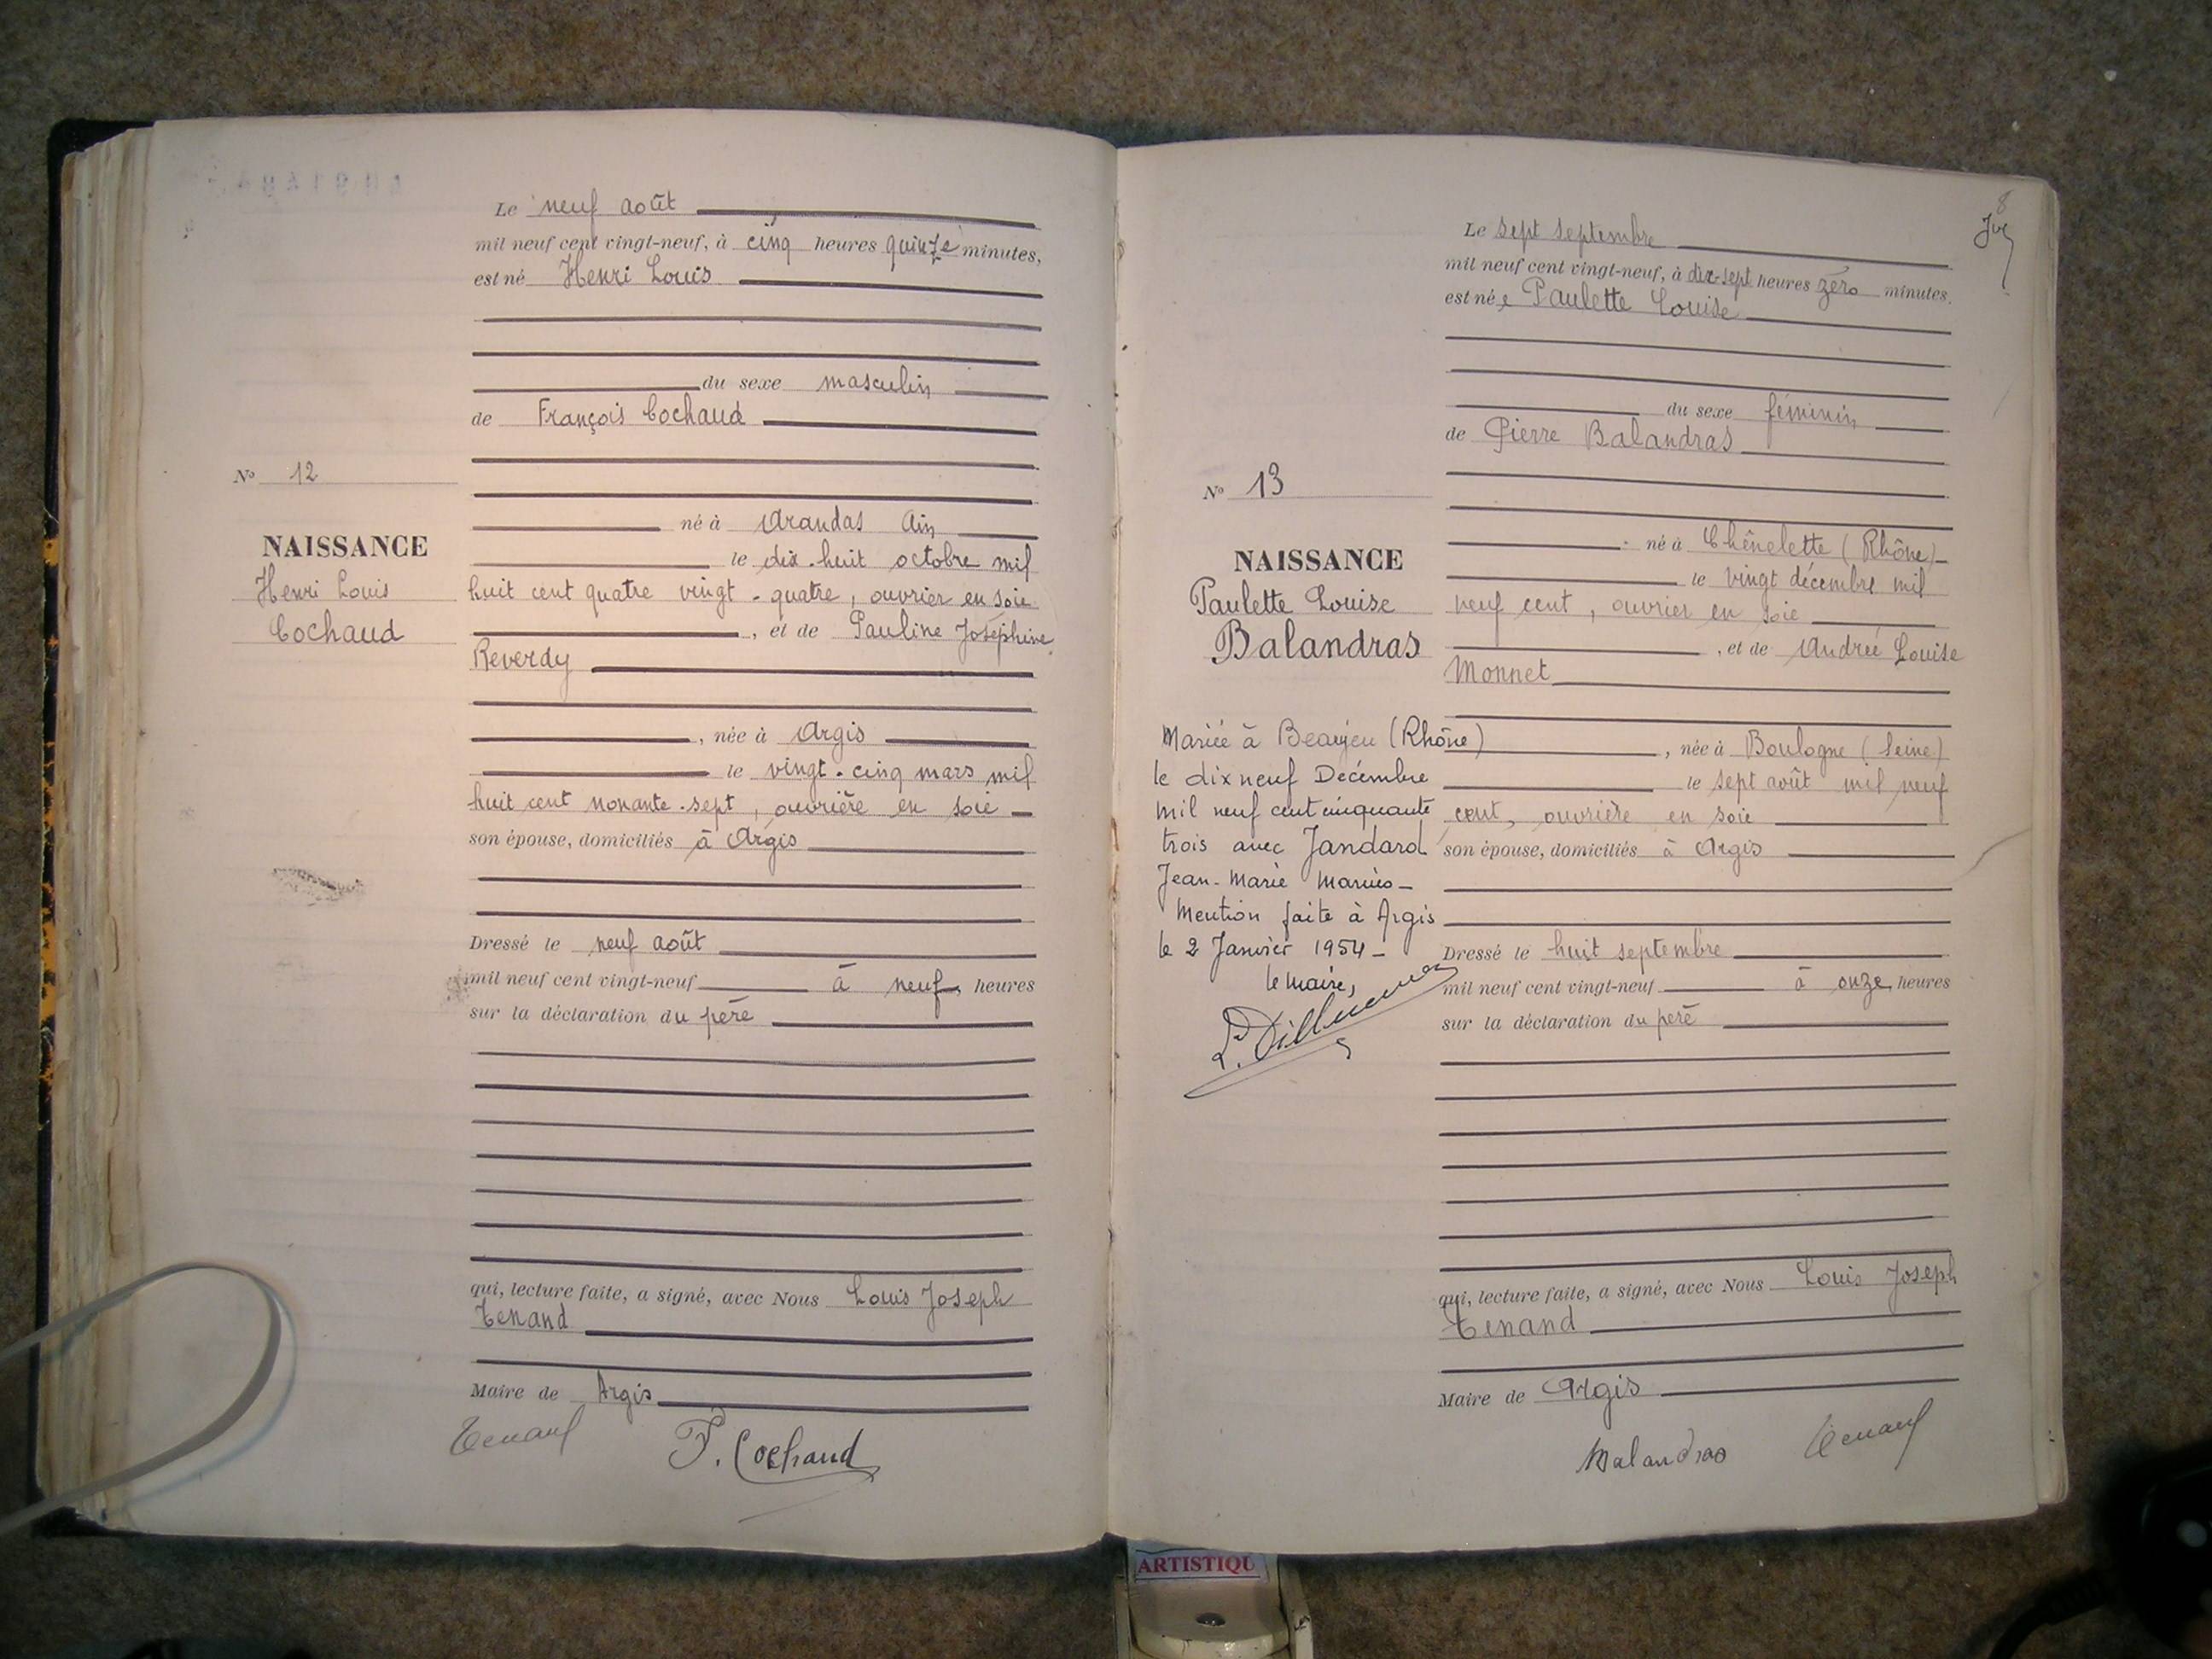 Le neuf août
mil neuf cent vingt-neuf, à cinq heures quinze minutes,
est né Henri Louis
du sexe masculin
de François Cochaud
né à Arandas Ain
le dix-huit octobre mil
huit cent quatre vingt-quatre, ouvrier en soie
, et de Pauline Joséphine
Reverdy
, née à Argis
le vingt-cinq mars mil
huit cent nonante-sept, ouvrière en soie
son épouse, domiciliés à Argis
Dressé le neuf août
mil neuf cent vingt-neuf à neuf heures
sur la déclaration du père
qui, lecture faite, a signé, avec Nous Louis Joseph
Tenand
Maire de Argis
Tenand P. Cochaud
No 12
NAISSANCE
Henri Louis
Cochaud
8
Le sept septembre
mil neuf cent vingt-neuf, à dix-sept heures zéro minutes.
est née Paulette Louise
du sexe féminin
de Pierre Balandras
né à Chênelette (Rhône)
le vingt décembre mil
neuf cent, ouvrier en soie
, et de Andrée Louise
Monnet
, née à Boulogne (Seine)
le sept août mil neuf
cent, ouvrière en soie
son épouse, domiciliés à Argis
Dressé le huit septembre
mil neuf cent vingt-neuf à onze heures
sur la déclaration du père
qui, lecture faite, a signé, avec Nous Louis Joseph
Tenand
Maire de Argis
Balandras Tenand
No 13
NAISSANCE
Paulette Louise
Balandras
Mariée à Beaujeu (Rhône)
le dix neuf Décembre
mil neuf cent cinquante
trois avec Jandard
Jean-Marie Marius-
Mention faite à Argis
le 2 Janvier 1954-
le maire,
ARTISTIQU